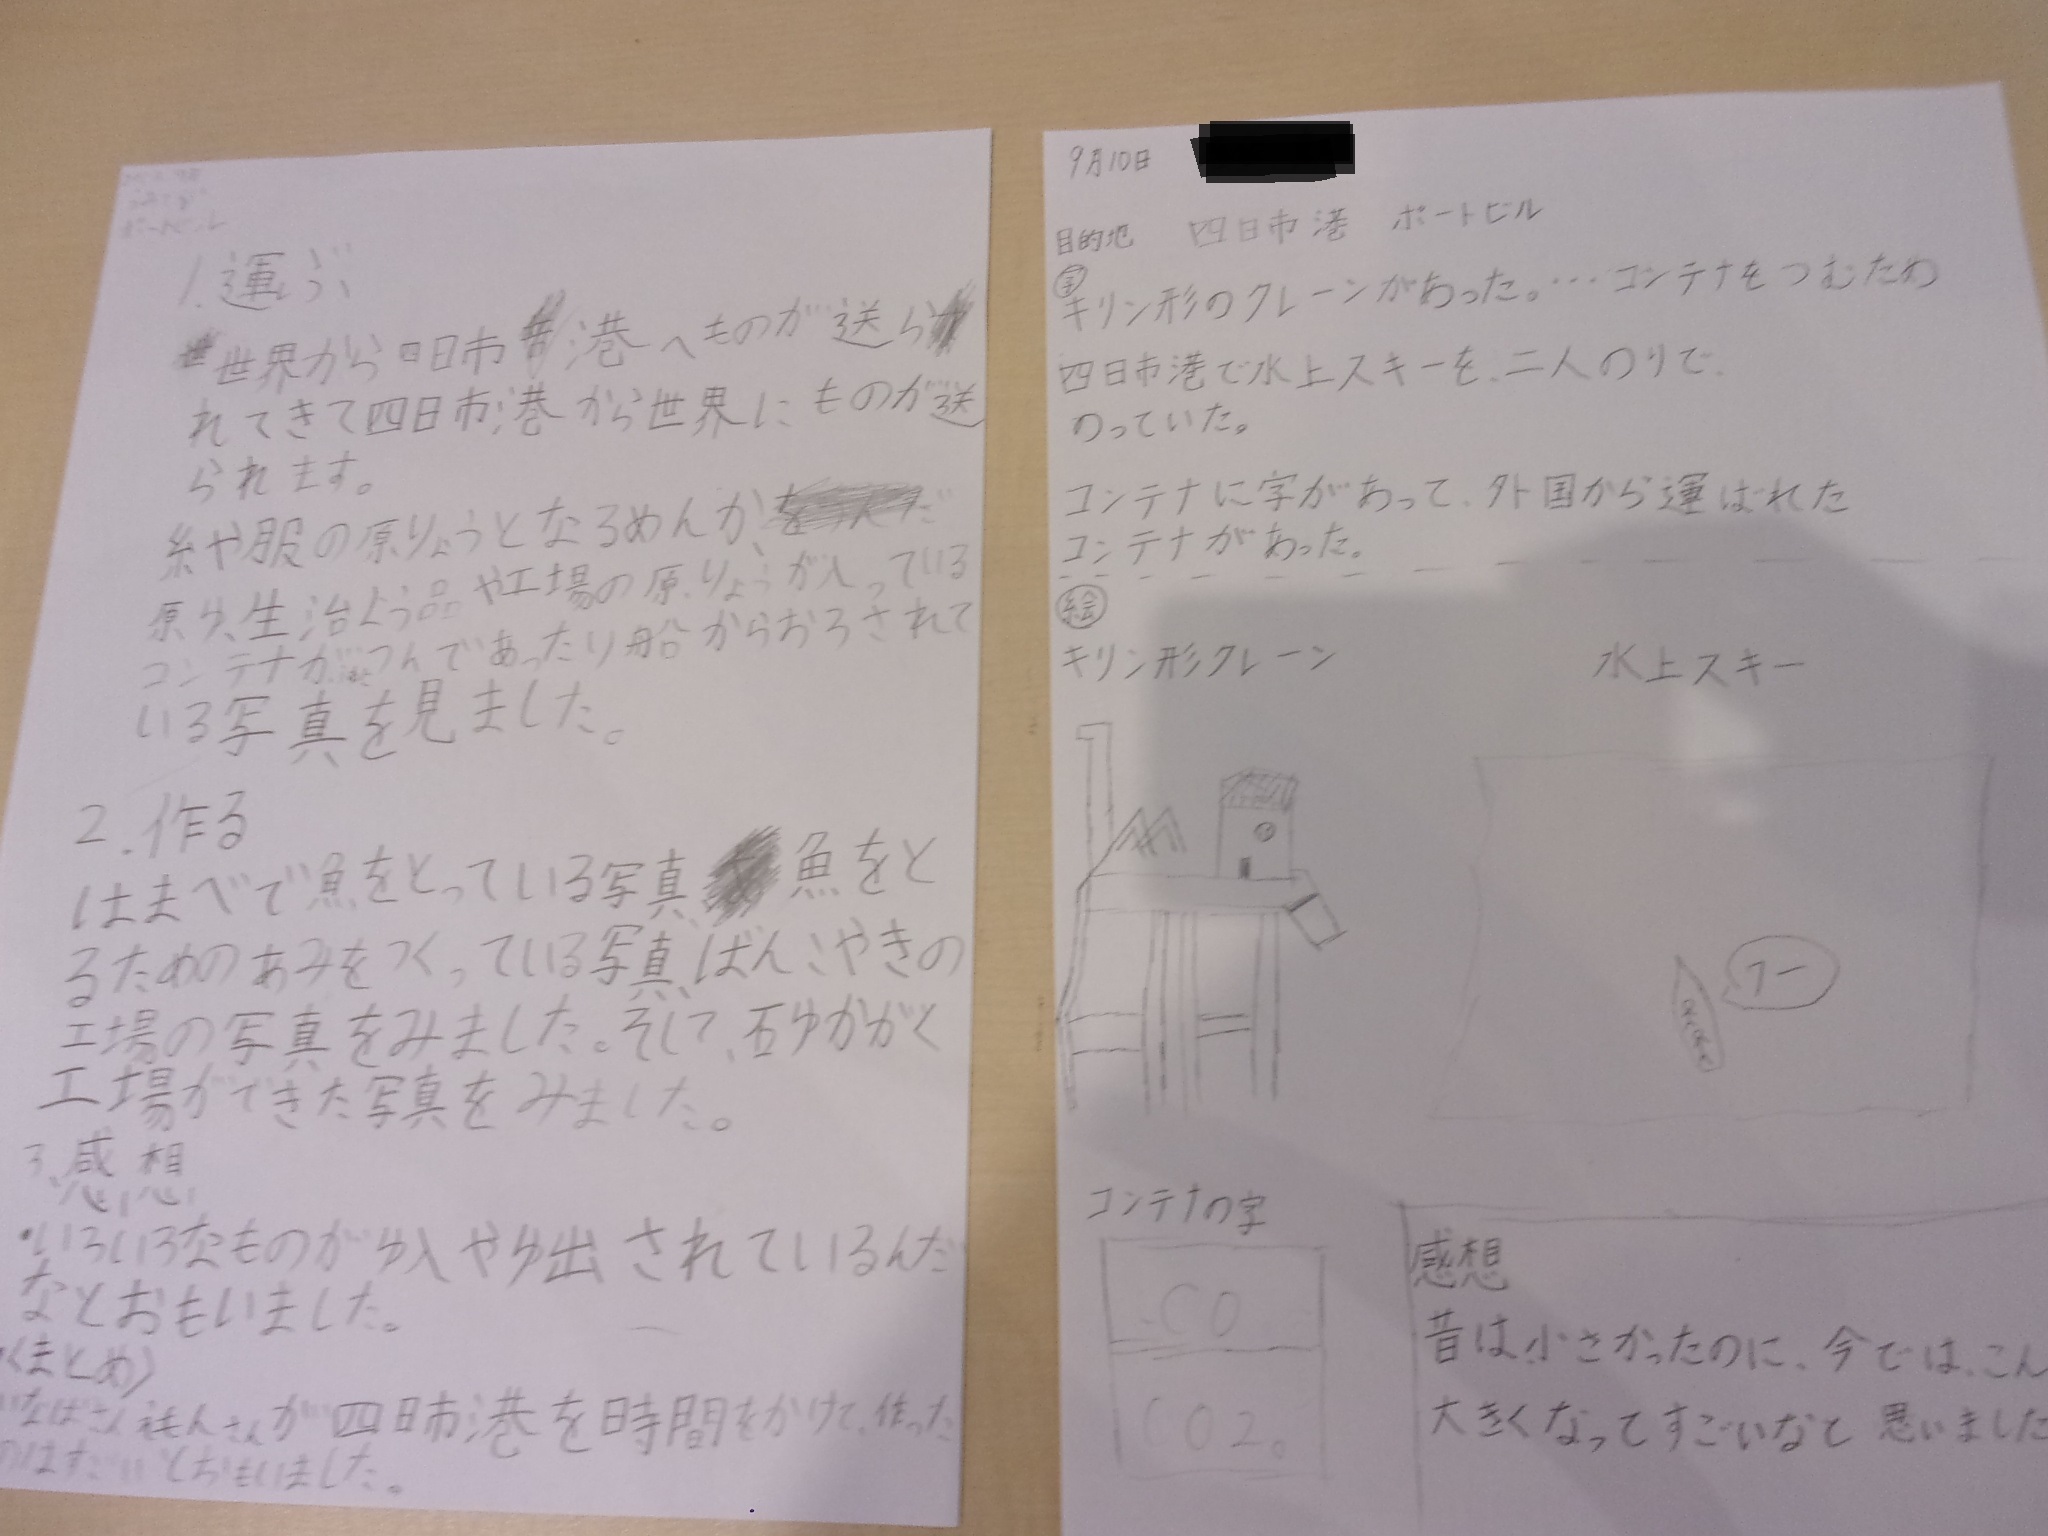 1.運ぶ
世界から四日市港へものが送ら
れてきて四日市港から世界にものが送
られます。
糸や服の原りょうとなるめんか、
原りょ、生治よう品や工場の原りょうが入っている
コンテナがつんであったり船からおろされて
いる写真を見ました。
2.作る
はまべで魚をとっている写真、魚をと
るためのあみをつくっている写真、ばんこやきの
工場の写真をみました。そして、石ゆかがく
工場ができた写真をみました。
3.感想
・いろいろなものがゆ入やゆ出されているんだ
なとおもいました。
〈まとめ〉
いなばさん右もんさんが四日市港を時間をかけて、作った
のはすごいとおもいました。
9月10日
目的地 四日市港 ポートビル
キリン形のクレーンがあった。…コンテナをつむため
四日市港で水上スキーを、二人のりで、
のっていた。
コンテナに字があって、外国から運ばれた
コンテナがあった。
絵
キリン形クレーン 水上スキー
フー
コンテナの字
CO
CO2。
感想
昔は小さかったのに、今では、こん
大きくなってすごいなと思いました